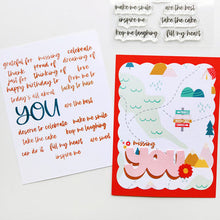 make me smile
inspire me
take the cake
keep me laughing
fill my heart
grateful for missing celebrate
thank dreaming of
just thinking of love
happy birthday to from me to
today's all about lucky to have
YOU are the best
deserve to celebrate make me smile
take the cake keep me laughing
can do it fill my heart are sweet
inspire me
missing
YOU